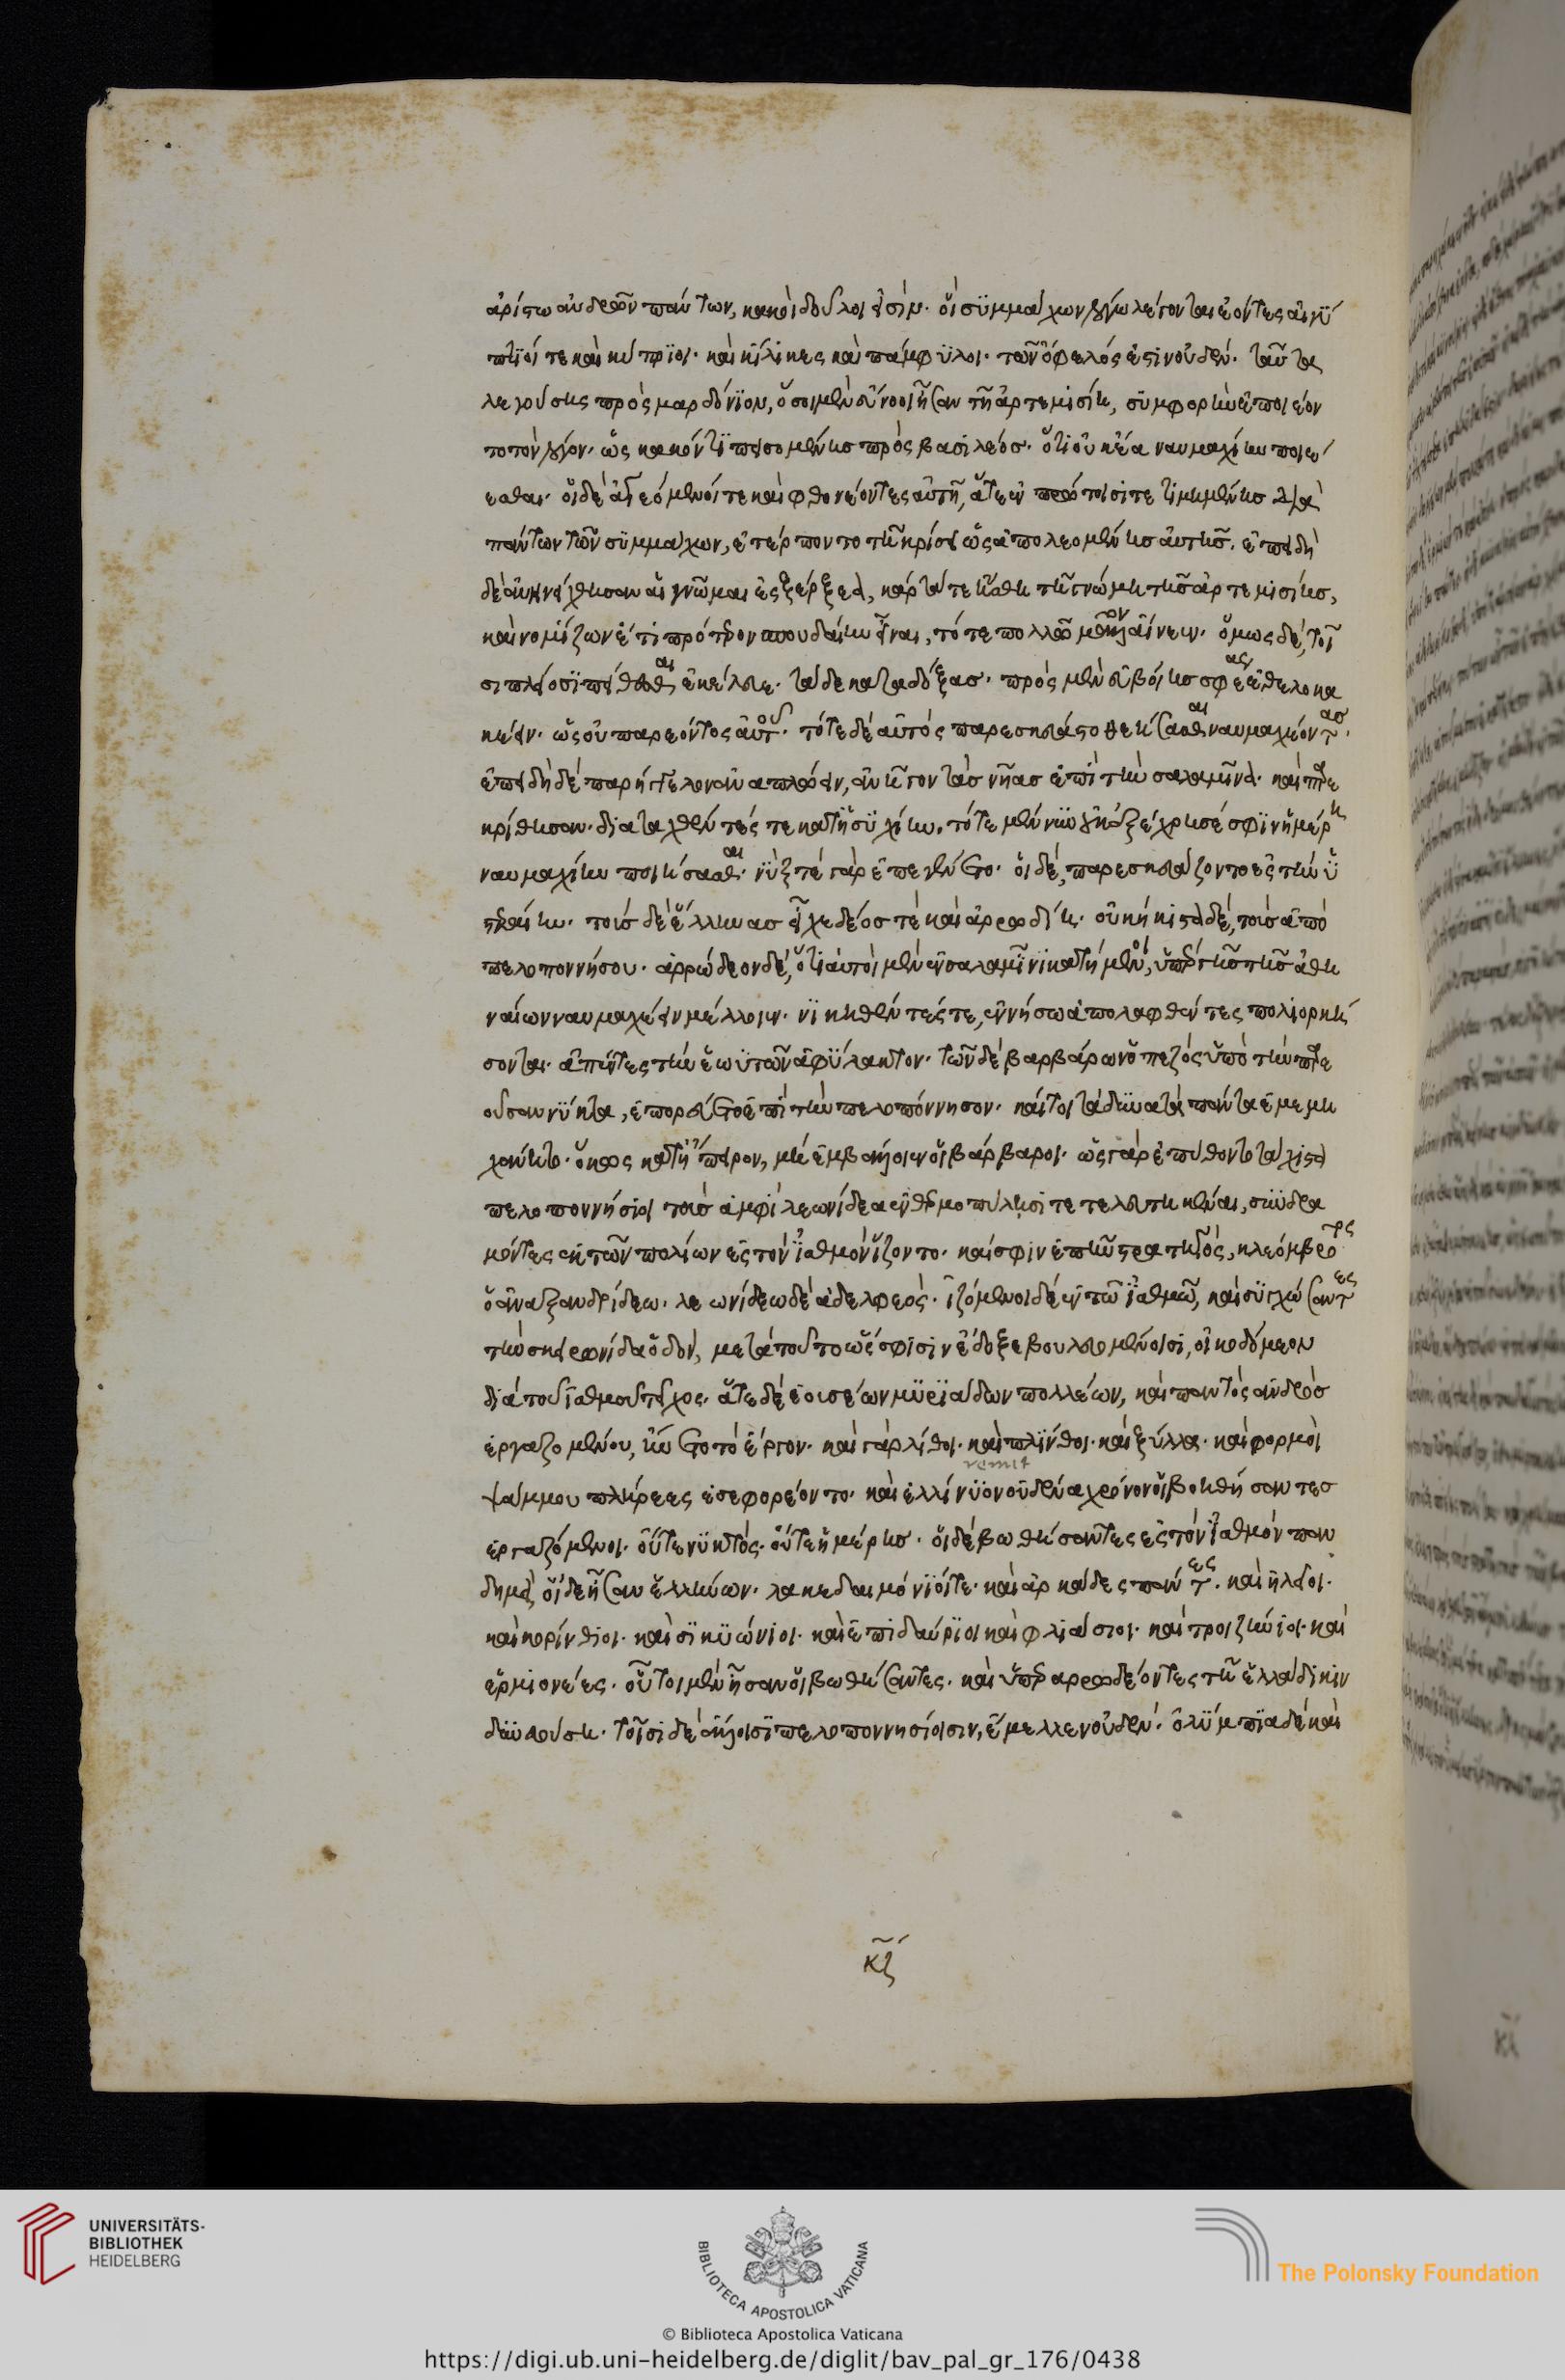 ἀρίστω ἀνδρῶν πάντων, κακοὶ δοῦλοι εἰσίν. οἳ συμμάχων λόγω λέγονται ἐόντες αἰγύ
πτιοί τε καὶ κύπριοι. καὶ κίλικες καὶ πάμφυλοι. τῶν ὄφελός ἐστιν οὐδέν. ταῦτα
λεγούσης πρὸς μαρδόνιον, ὅσοι μὲν εὔνοοι ἦσαν τῆ ἀρτεμισίη, συμφορὴν ἐποιεῦν
το τὸν λόγον. ὡς κακόν τι πεισομένης πρὸς βασιλέος. ὅτι οὐκ ἔα ναυμαχίην ποιέ
εσθαι. οἱ δὲ ἀγεόμενοί τε καὶ φθονέοντες αὐτῆ, ἅτε ἐν πρώτοισί τε τιμημένης διὰ
πάντων τῶν συμμάχων, ἐτέρποντο τῆ κρίσει ὡς ἀπολεομένης αὐτῆς. ἐπειδὴ
δὲ ἀνηνείχθησαν αἱ γνῶμαι ἐς ξέρξεα, κάρτα τε ἥσθη τῆ γνώμη τῆς ἀρτεμισίης,
καὶ νομίζων ἔτι πρότερον σπουδαίην εἶναι, τότε πολλῶ μᾶλλον αἴνεεν. ὅμως δὲ, τοῖ
σι πλέοσι πείθεσθαι ἐκέλευε. τάδε καταδόξας. πρὸς μὲν εὐβοίης σφέας ἐθελοκα
κέειν. ὡς οὐ παρεόντος αὐτοῦ. τότε δὲ αὐτὸς παρεσκευάστο θεήσασθαι ναυμαχέοντας.
ἐπειδὴ δὲ παρήγγελον ἀναπλώειν, ἀνῆγον τὰς νῆας ἐπὶ τὴν σαλαμῖνα. καὶ παρε
κρίθησαν. διαταχθέντές τε κατ' ἡσυχίην. τότε μέν νυν οὐκ ἐξέχρησέ σφιν ἡμέρη
ναυμαχίην ποιήσασθαι. νὺξ τὲ γὰρ ἐπεγένετο. οἱ δὲ, παρεσκευάζοντο ἐς τὴν ὑ
στεραίην. τοὺς δὲ ἕλληνας εἶχε δέος τὲ καὶ ἀρρωδίη. οὐκ ἥκιστα δὲ, τοὺς ἀπὸ
πελοποννήσου. ἀρρώδεον δὲ, ὅτι αὐτοὶ μὲν ἐν σαλαμῖνι κατήμενοι, ὑπὲρ γῆς τῆς ἀθη
ναίων ναυμαχέειν μέλλοιεν. νικηθέντές τε, ἐν νήσω ἀπολαφθέντες πολιορκή
σονται. ἀπέντες τὴν ἑωυτῶν ἀφύλακτον. τῶν δὲ βαρβάρων ὁ πεζὸς ὑπὸ τὴν παρε
οῦσαν νύκτα, ἐπορεύετο ἐπὶ τὴν πελοπόννησον. καίτοι τὰ δυνατὰ πάντα ἐμεμη
χάνητο. ὅκως κατ' ἤπειρον, μὴ ἐμβάλοιεν οἱ βάρβαροι. ὡς γὰρ ἐπύθοντο τάχιστα
πελοποννήσιοι τοὺς ἀμφὶ λεωνίδεα ἐν θερμοπύλησί τετελευτηκέναι, συνδρα
μόντες ἐκ τῶν πολίων ἐς τὸν ἰσθμὸν ἵζοντο. καί σφιν ἐπῆν στρατηγὸς, κλεόμβροτος
ὁ ἀναξανδρίδεω. λεωνίδεω δὲ ἀδελφεὸς. ἱζόμενοι δὲ ἐν τῶ ἰσθμῶ, καὶ συγχώσαντες
τὴν σκειρωνίδα ὁδὸν, μετὰ τοῦτο ὥς σφισιν ἔδοξε βουλευομένοισι, οἰκοδόμεον
διὰ τοῦ ἰσθμοῦ τεῖχος. ἅτε δὲ ἐουσέων μυριάδων πολλέων, καὶ παντὸς ἀνδρὸς
ἐργαζομένου, ἤνετο τὸ ἔργον. καὶ γὰρ λίθοι. καὶ πλίνθοι. καὶ ξύλα. καὶ φορμοὶ
ψάμμου πλήρεες ἐσεφορέοντο. καὶ ἐλίνυον οὐδένα χρόνον οἱ βοηθήσαντες
ἐργαζόμενοι. οὔτε νυκτὸς. οὔτε ἡμέρης. οἱ δὲ βωθήσαντες ἐς τὸν ἰσθμὸν παν
δημεὶ, οἵδε ἦσαν ἑλλήνων. λακεδαιμόνιοί τε. καὶ ἀρκάδες πάντες. καὶ ἠλεῖοι.
καὶ κορίνθιοι. καὶ σικυώνιοι. καὶ ἐπιδαύριοι καὶ φλιάσιοι. καὶ τροιζήνιοι. καὶ
ἑρμιονέες. οὗτοι μὲν ἦσαν οἱ βωθήσαντες. καὶ ὑπεραρρωδέοντες τῆ ἑλλάδι κιν
δυνευούση. τοῖσι δὲ ἄλλοισι πελοποννησίοισιν, ἔμελλεν οὐδέν. ὀλύμπια δὲ καὶ
κζ
UNIVERSITÄTS-
BIBLIOTHEK
HEIDELBERG
BIBLIOTECA APOSTOLICA VATICANA
The Polonsky Foundation
© Biblioteca Apostolica Vaticana
https://digi.ub.uni-heidelberg.de/diglit/bav_pal_gr_176/0438